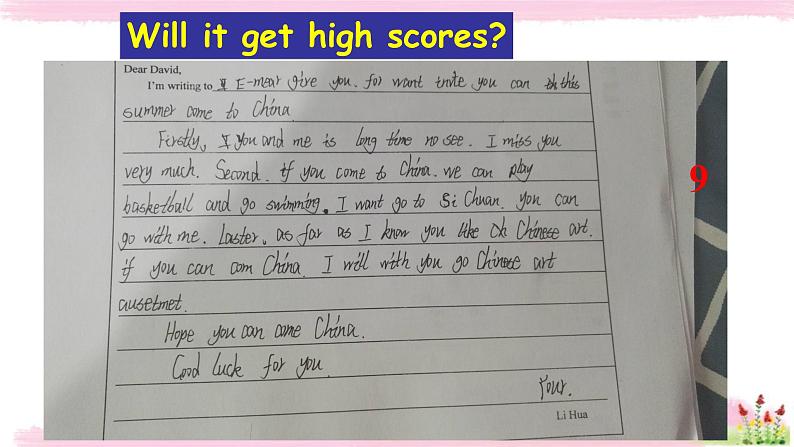 Will it get high scores?
Dear David,
I'm writing to I E-mear give you. for want invite you can this
summer come to China.
Firstly, I you and me is long time no see. I miss you
very much. Second. if you come to China. we can play
basketball and go swimming. I want go to Si Chuan. you can
go with me. Laster, as far as I know you like Chinese art.
if you can com China. I will with you go Chinese art
ausetmet.
Hope you can come China.
Good Luck for you.
Your.
Li Hua
9